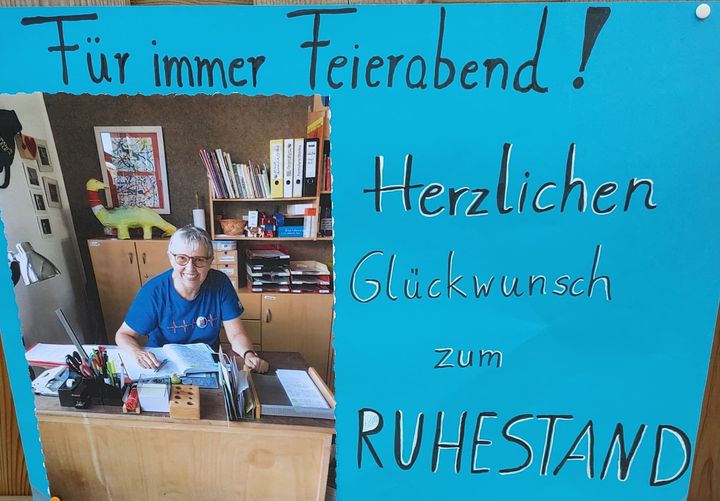 Für immer Feierabend!
Herzlichen
Glückwunsch
zum
RUHESTAND